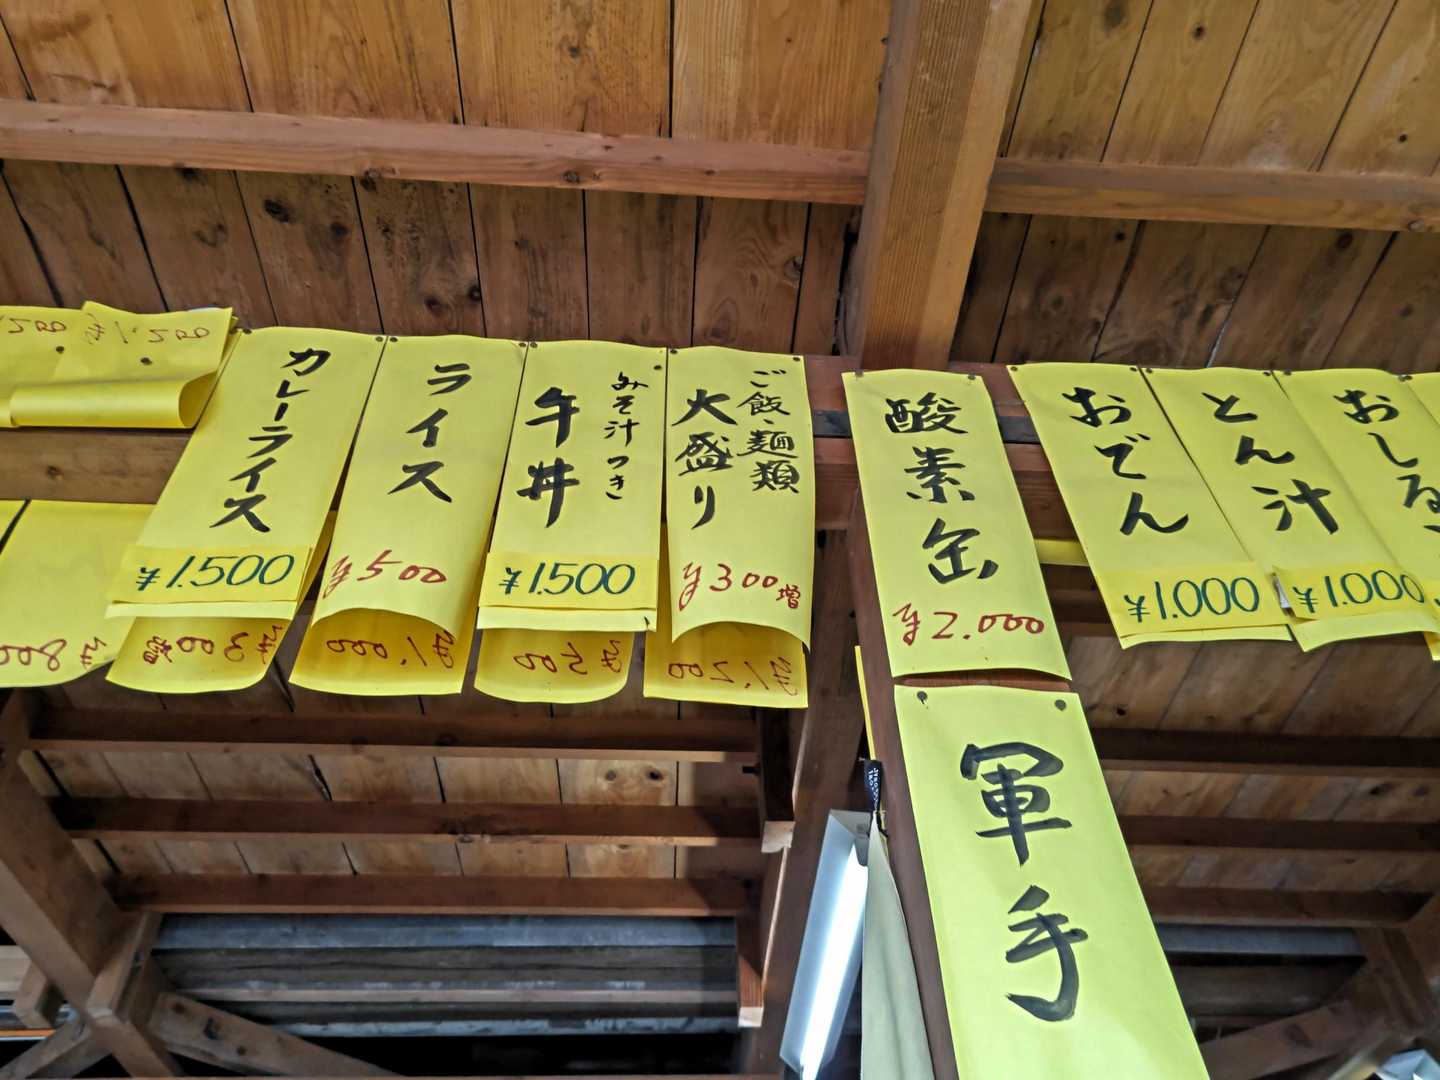 カレーライス
¥1.500
ライス
¥500
みそ汁つき
牛丼
¥1.500
ご飯・麺類
大盛り
¥300増
酸素缶
¥2.000
軍手
おでん
¥1.000
とん汁
¥1.000
おしる
¥300増
¥1,000
¥500
¥1,200
¥800
¥1,500
500